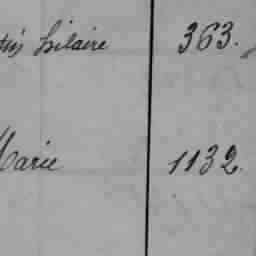 Hilaire 363.
Marie 1132.